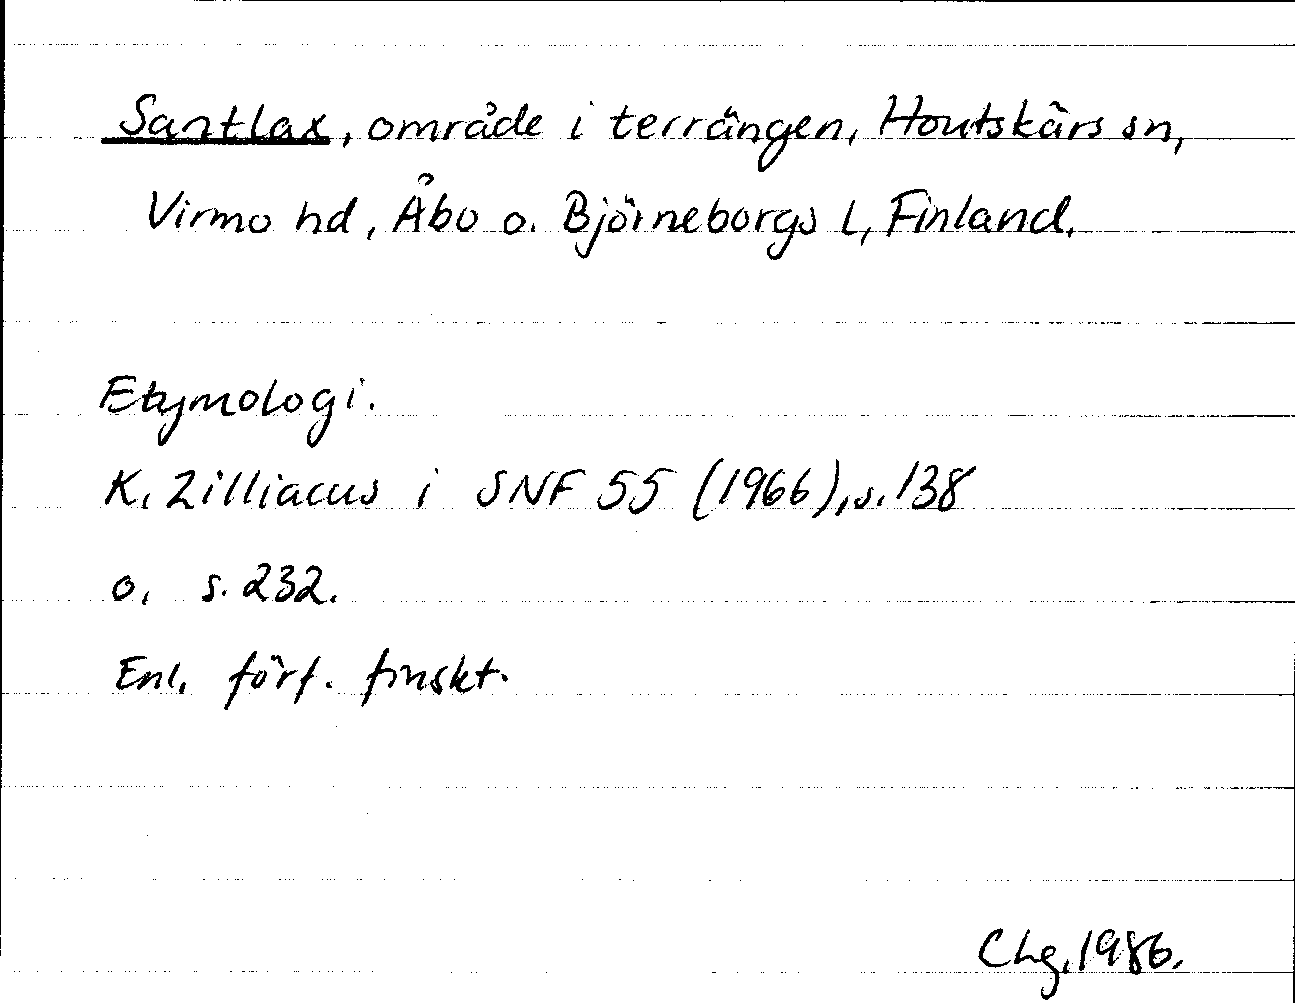 Santlax, område i terrängen, Houtskärs sn,
Virmo hd, Åbo o. Björneborgs l, Finland.
Etymologi.
K. Zilliacus i SNF 55 (1966), s. 138
o. s. 232.
Enl. förf. finskt.
Chg. 1986.